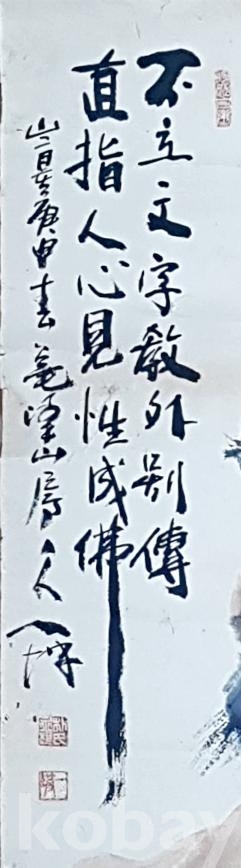 不立文字教外別傳
直指人心見性成佛
庚申春
山房主人
kobay